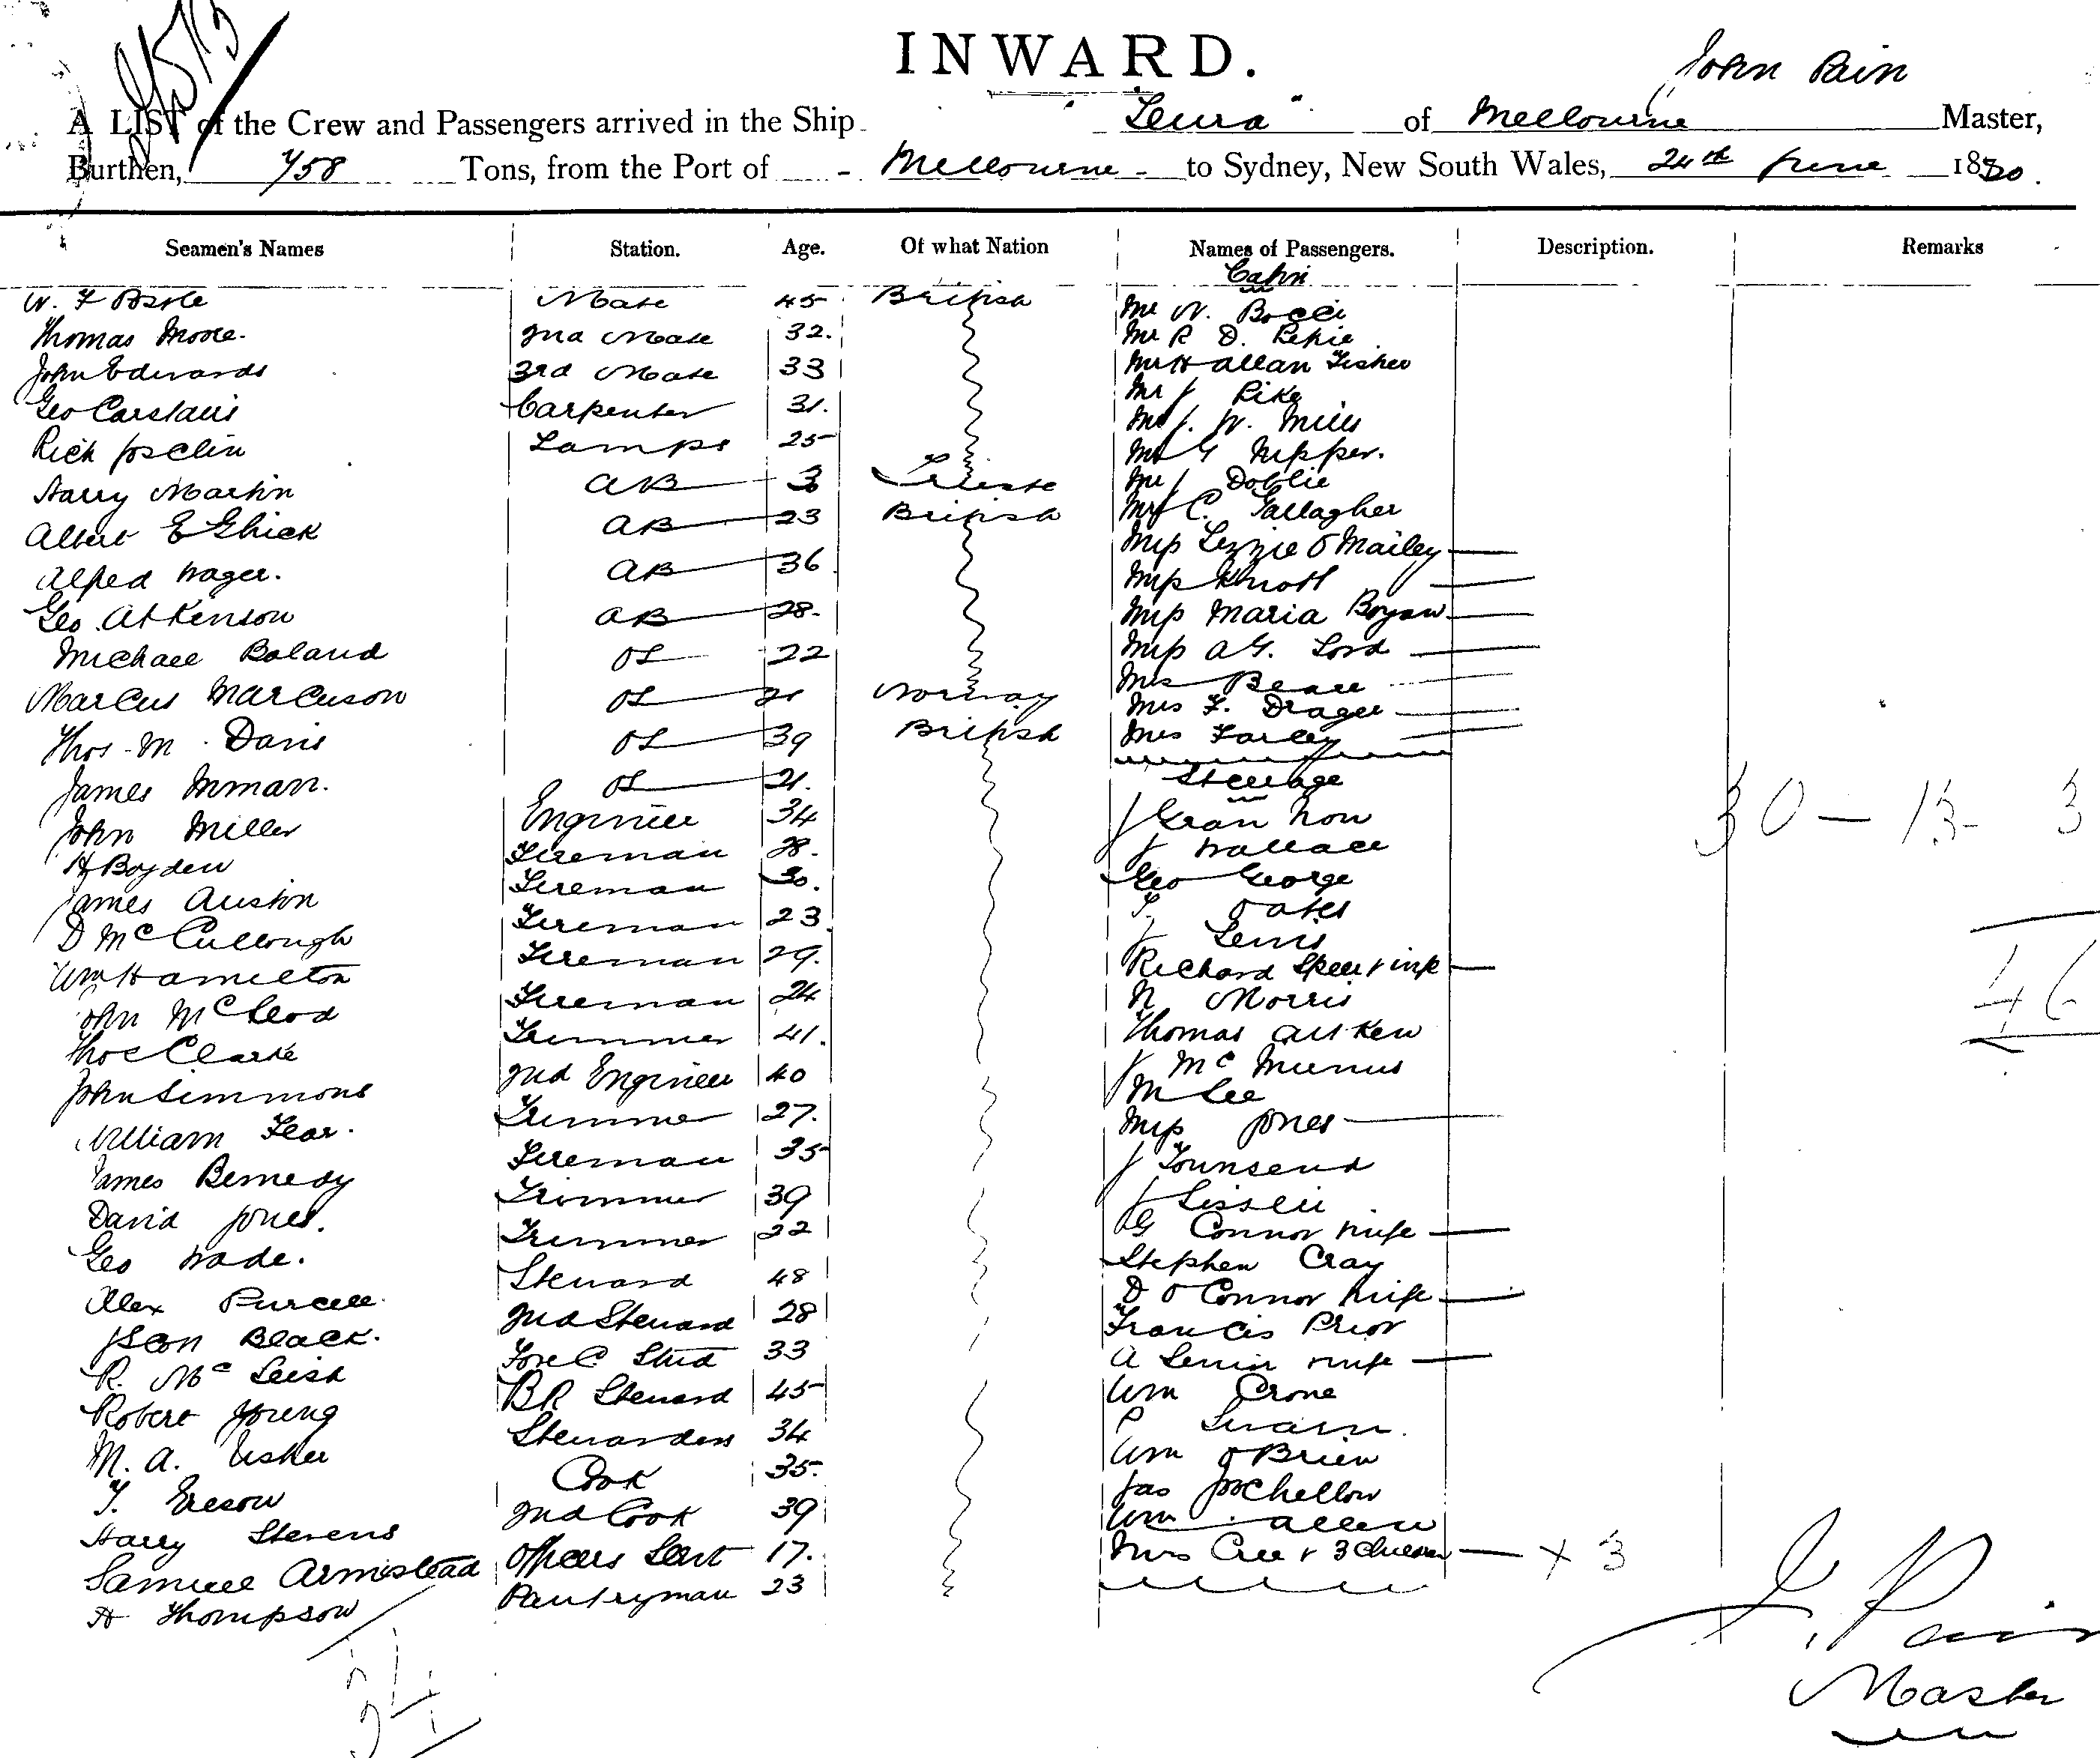 INWARD.
John Pain
A LIST of the Crew and Passengers arrived in the Ship "Leura" of Melbourne Master,
Burthen, 758 Tons, from the Port of Melbourne to Sydney, New South Wales, 24th June 18
Seamen's Names Station. Age. Of what Nation Names of Passengers. Description. Remarks
Cabin
W. F Mate 45 British Mr W. Bocci
Thomas Moore. 2nd Mate 32. Mr R D.
John Edwards 3rd Mate 33 Mr H Allan Fisher
Geo Carstairs Carpenter 31. Mr J Pike
Rich Joselin Lamps 25 Mr J. W. Mills
Mr G Nipper.
Harry Martin AB 3 Trieste Mr J Doblie
Albert E Ghick AB 23 British Mr C. Gallagher
Miss Lizzie O Mailey
Alfred Wager. AB 36 Miss Knott
Geo. Atkinson AB 28. Miss Maria
Michael Boland OS 22 Miss A G. Lord
Marcus Marcuson OS 21 Norway Mrs
Mrs F. Drager
Thos. M. Davis OS 39 British Mrs Farley
James Inman. OS 21. Steerage
John Miller Engineer 34 J
H Boyden Fireman 28. J Wallace
James Austin Fireman 30. Geo George
D McCullough Fireman 23 T. Oates
J Lewis
Wm Hamilton Fireman 29. Richard Speer & wife
John McLeod Fireman 24 N Morris
Thos Clarke Trimmer 41. Thomas Aitken
J McManus
John Simmons 2nd Engineer 40 M Lee
William Fear. Trimmer 27. Miss Jones
James Bemedy Fireman 35 J Townsend
David Jones. Trimmer 39 J
Geo Wade. Trimmer 22 G Connor wife
Alex Purcell. Steward 48 Stephen Cray
D O Connor wife
Json Black. 2nd Steward 28 Francis Prior
R. McLeish Fore C. Stwd 33 A wife
Robert Young BR Steward 45 Wm Crone
M. A. Usher Stewardess 34 P Swain.
T. Ereson Cook 35. Wm O Brien
Harry Stevens 2nd Cook 39 Jas
Wm Allen
Samuel Armistead Officers Servt 17. Mrs Cree & 3 Children x 3
H Thompson Pantryman 23
30 - 13 3
46
J. Pain
Master